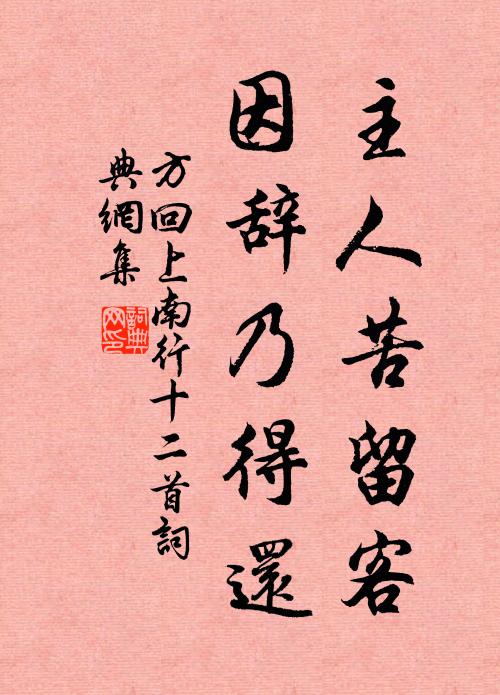 主人苦留客
因辞乃得還
方回上南行十二首詞
典網集
詞典
网印